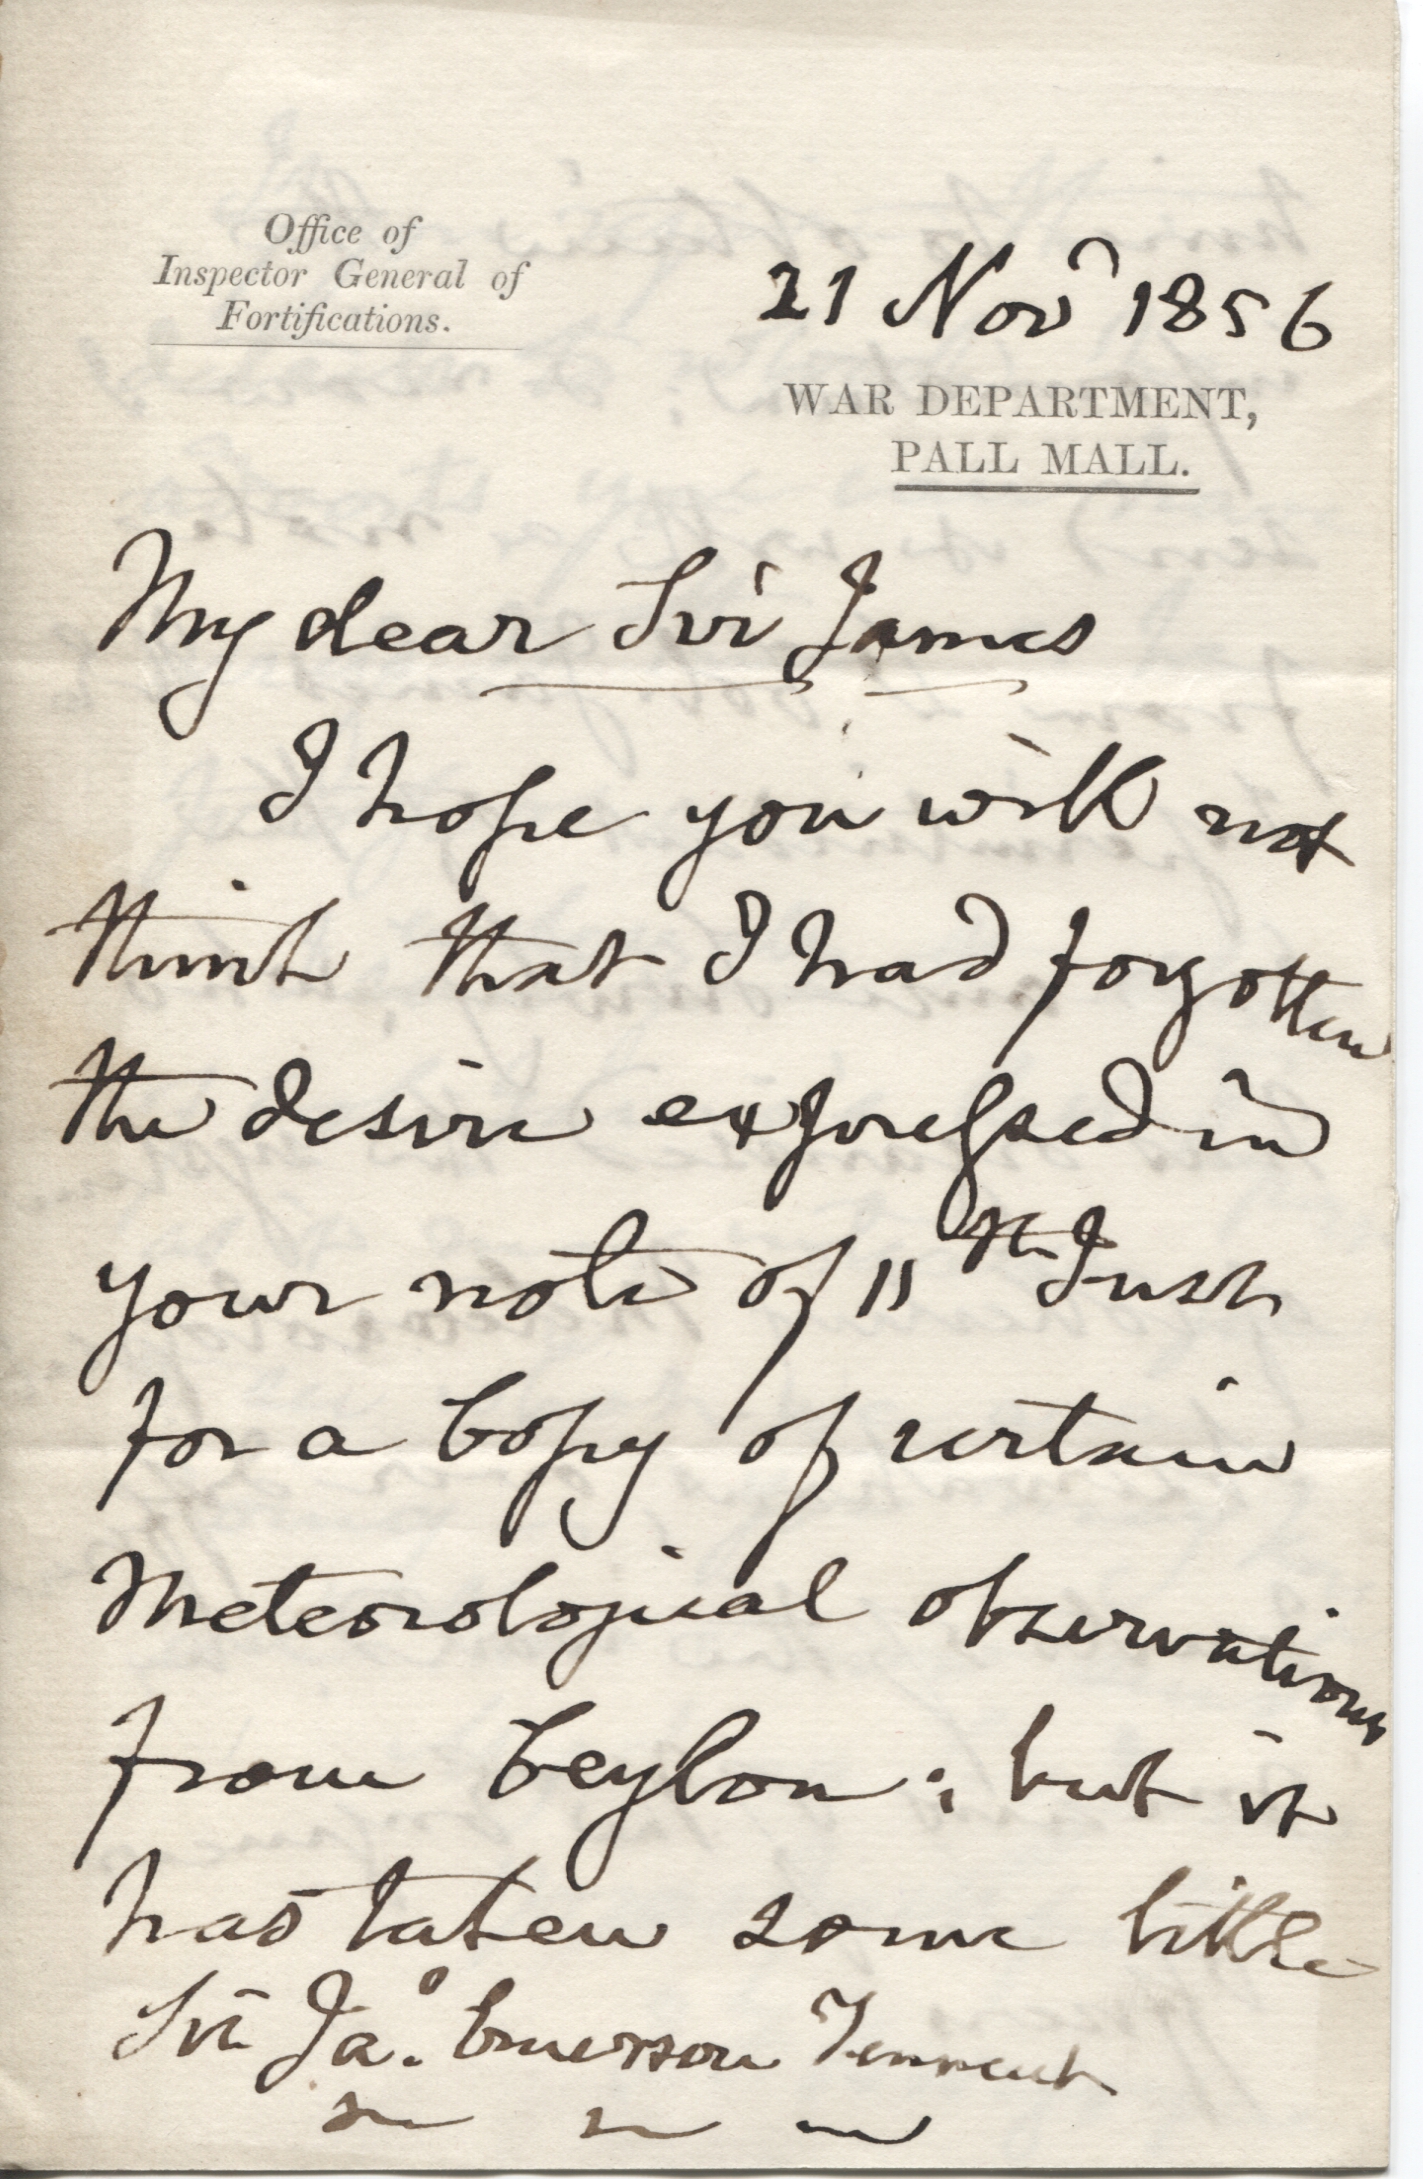 Office of
Inspector General of
Fortifications.
21 Novr 1856
WAR DEPARTMENT,
PALL MALL.
My dear Sir James
I hope you will not
think that I had forgotten
the desire expressed in
your note of 11th Inst
for a Copy of certain
Meteorological observations
from Ceylon; but it
has taken some little
Sir Jas. Emerson Tennent